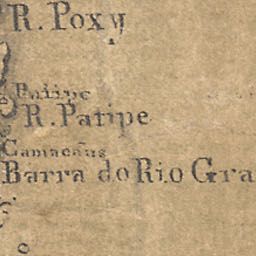 R. Poxy
Patipe
R. Patipe
Camacãus
Barra do Rio Gra